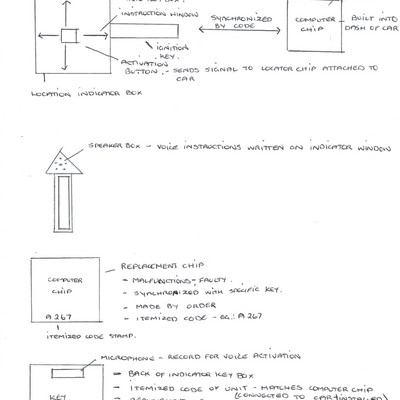 INSTRUCTION WINDOW
SYNCHRONIZED
BY CODE
COMPUTER
CHIP
BUILT INTO
DASH OF CAR
IGNITION
KEY.
ACTIVATION
BUTTON. - SENDS SIGNAL TO LOCATOR CHIP ATTACHED TO
CAR
LOCATION INDICATOR BOX
SPEAKER BOX - VOICE INSTRUCTIONS WRITTEN ON INDICATOR WINDOW
COMPUTER
CHIP
A267
ITEMIZED CODE STAMP.
REPLACEMENT CHIP
- MALFUNCTIONS - FAULTY.
- SYNCHRONIZED WITH SPECIFIC KEY.
- MADE BY ORDER
- ITEMIZED CODE - EG.: A267
MICROPHONE - RECORD FOR VOICE ACTIVATION
- BACK OF INDICATOR KEY BOX
- ITEMIZED CODE OF UNIT - MATCHES COMPUTER CHIP
KEY
(CONNECTED TO CAR + INSTALLED)